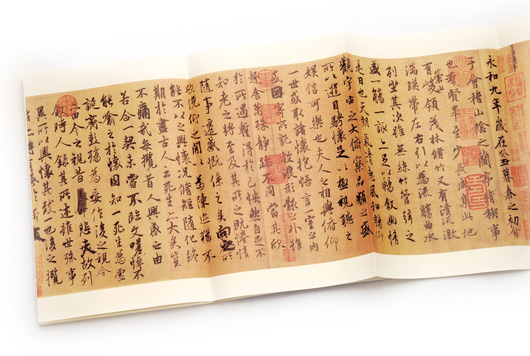 永和九年歲在癸丑暮春之初
于會稽山陰之蘭亭脩稧事
也群賢畢至少長咸集此地
有峻領茂林脩竹又有清流激
湍暎帶左右引以為流觴曲水
列坐其次雖無絲竹管弦之
盛一觴一詠亦足以暢敘幽情
是日也天朗氣清惠風和暢仰
觀宇宙之大俯察品類之盛
所以遊目騁懷足以極視聽之
娛信可樂也夫人之相與俯仰
一世或取諸懷抱悟言一室之內
或因寄所託放浪形骸之外雖
趣舍萬殊靜躁不同當其欣
於所遇蹔得於己怏然自足不
知老之將至及其所之既惓情
隨事遷感慨係之矣向之所
欣俛仰之閒以為陳迹猶不
能不以之興懷況脩短隨化終
期於盡古人云死生亦大矣豈
不痛哉每攬昔人興感之由
若合一契未嘗不臨文嗟悼不
能喻之於懷固知一死生為虛
誕齊彭殤為妄作後之視今
亦由今之視昔悲夫故列
敘時人錄其所述雖世殊事
異所以興懷其致一也後之攬